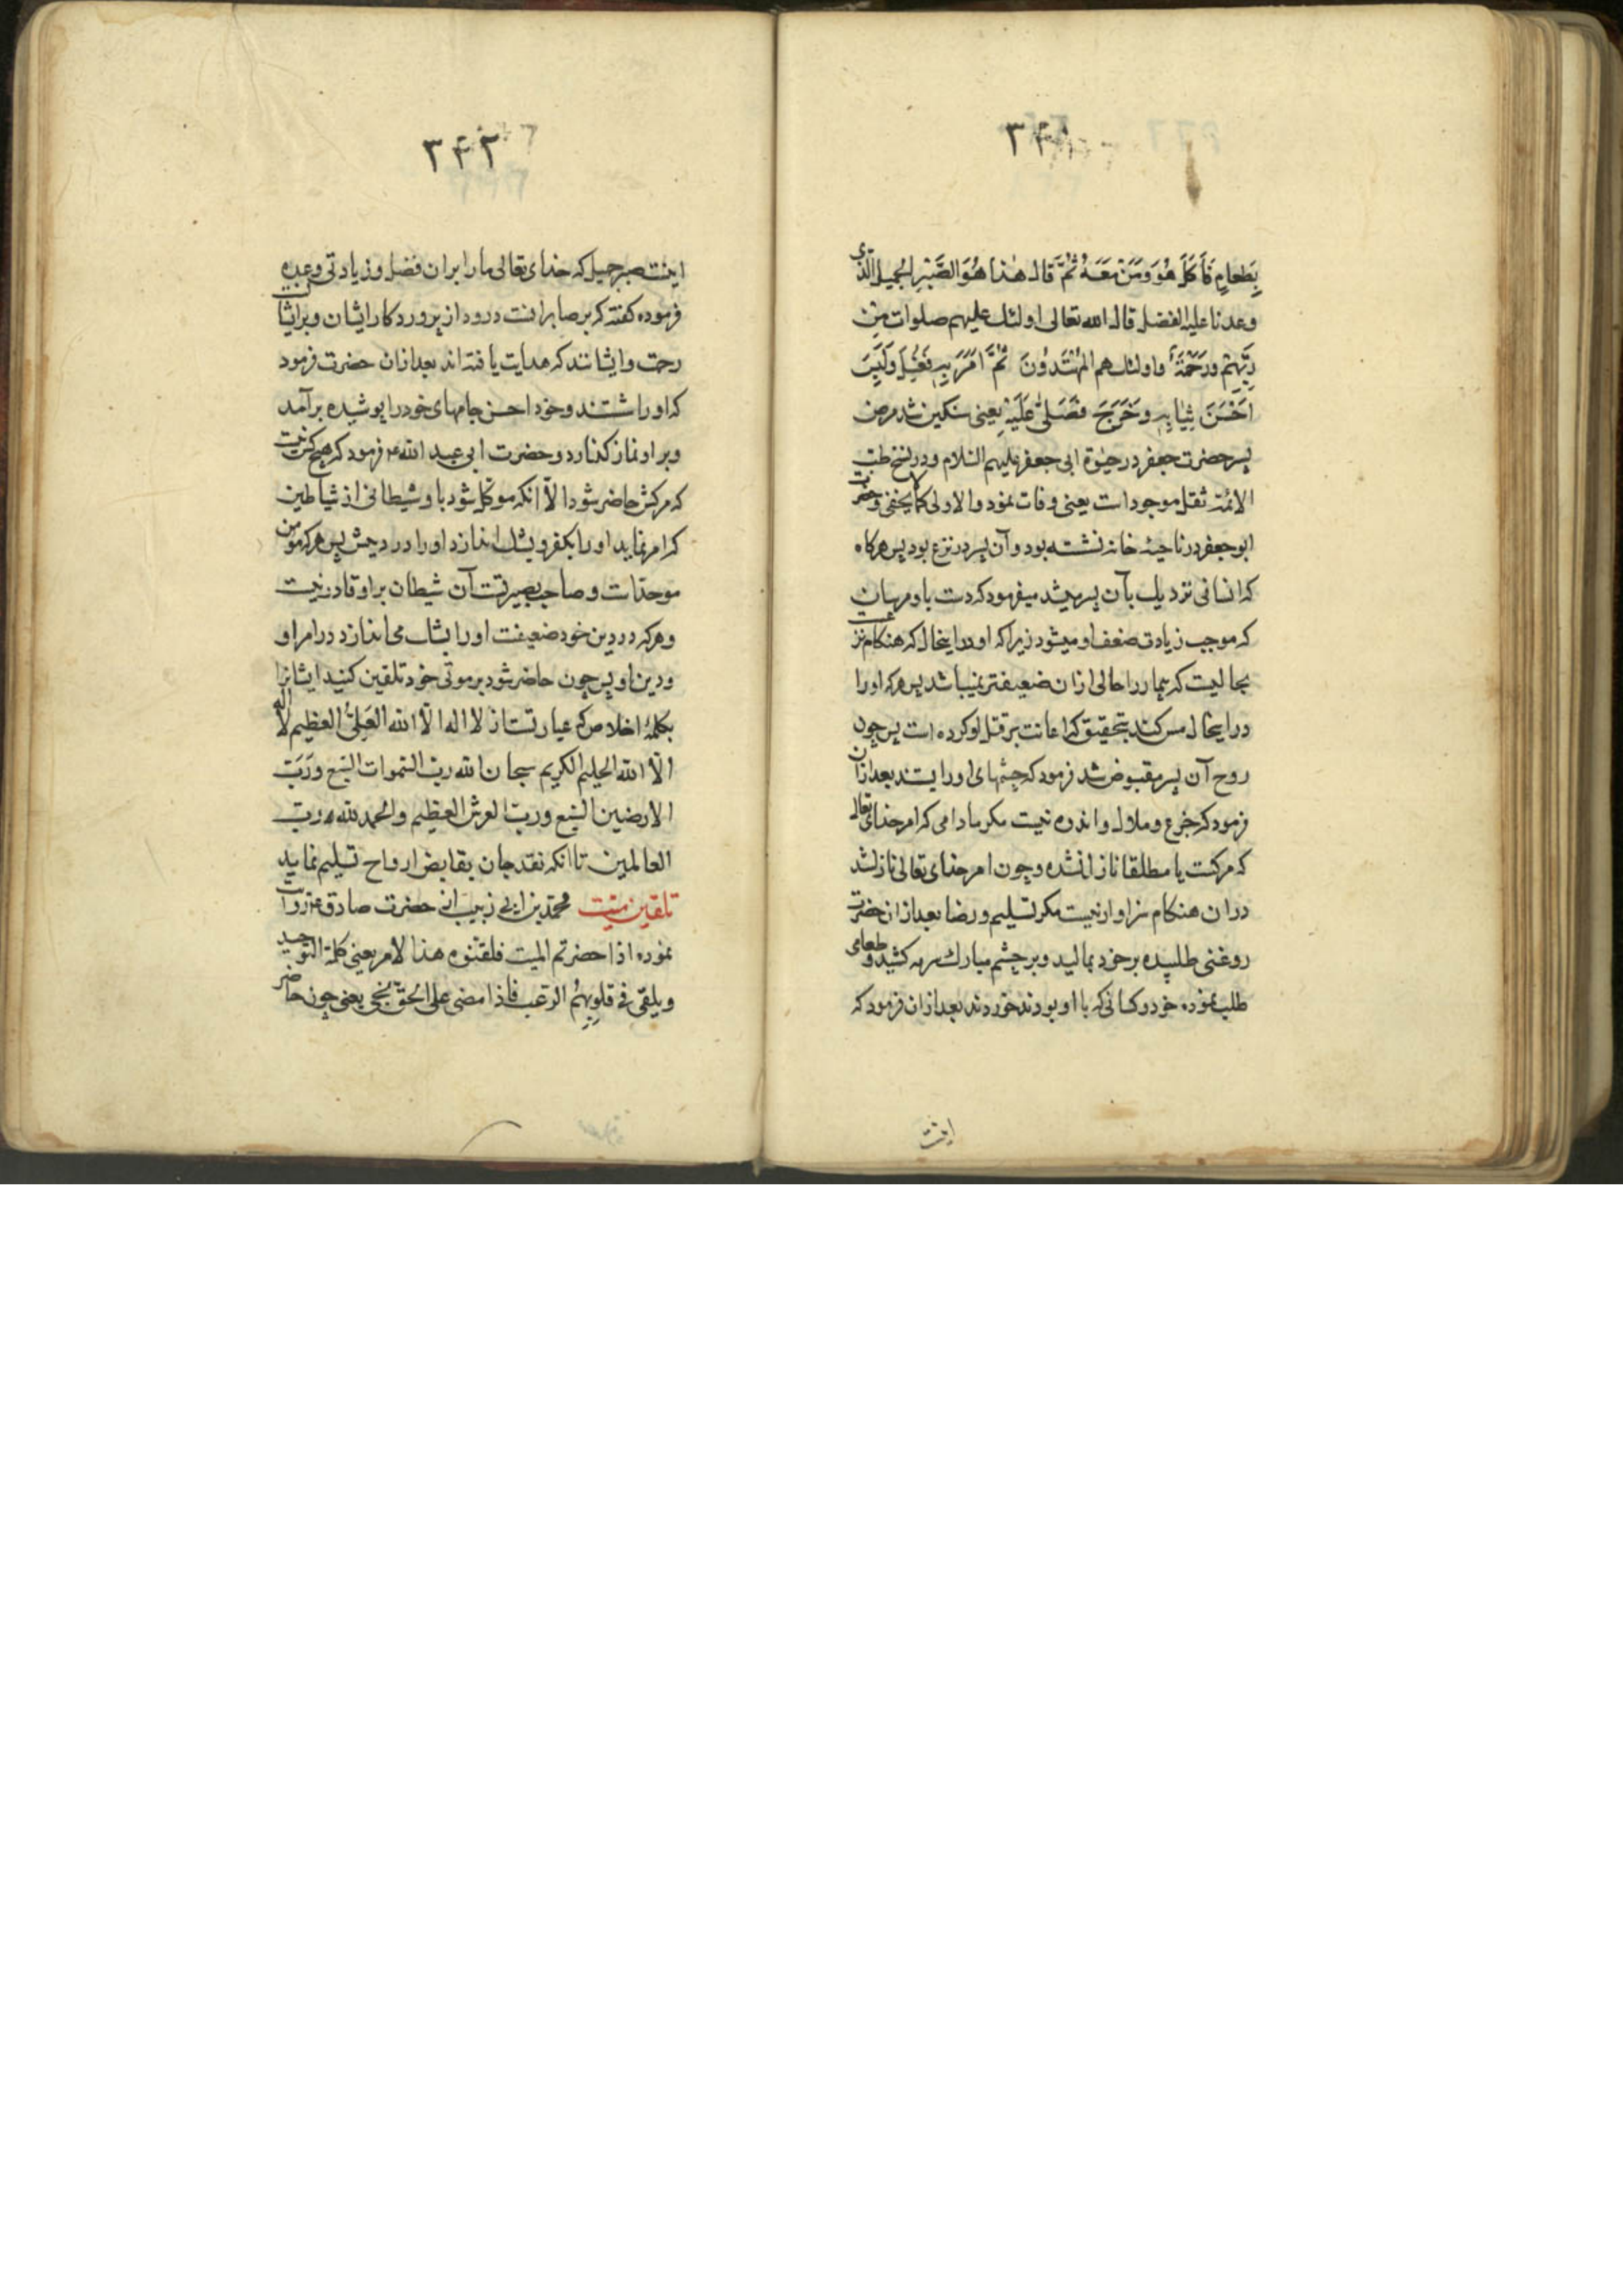 ۳۴۱
بِطَعامٍ فَأَكَلَ هُوَ وَمَنْ مَعَهُ ثُمَّ قال هٰذا هُوَ الصَّبْرُ الجميل الّذى
وعدنا عليه الفضل قال الله تعالى اولئك عليهم صلوات من
رَبِّهِمْ وَرَحْمَةٌ واولئك هم المُهْتَدُونَ ثُمَّ اَمَرَ بِهِ فَغُسِلَ وَلَبِسَ
اَحْسَنَ ثِيٰابِهِ وَخَرَجَ فَصَلّىٰ عَلَيْهِ يعنى سنكين شد مرض
پسر حضرت جعفر در حيوة ابى جعفر عليهم السّلام و در نسخ طب
الائمّة ثقل موجود است يعنى وفات نمود والاولى كما لا يخفى و حضرت
ابو جعفر در ناحيۀ خانه نشسته بود و آن پسر در نزع بود پس هركاه
كه انسانى نزديك بآن پسر ميشد ميفرمود كه دست باو مرسان
كه موجب زيادتى ضعف او ميشود زيرا كه او در اينحال كه هنكام نزعست
بحاليست كه بيمار را حالى از ان ضعيفتر نميباشد پس هركه او را
در اينحال مس كند بتحقيق كه اعانت بر قتل او كرده است پس چون
روح آن پسر مقبوض شد فرمود كه چشمهاى او را بستند بعد از ان
فرمود كه جزع و ملال و اندوه نيست مكر مادامى كه امر خداى تعالى
كه مركست يا مطلقا نازل نشده و چون امر خداى تعالى نازل شد
دران هنكام سزاوار نيست مكر تسليم و رضا بعد از ان حضرت
روغنى طلبيده بر خود ماليد و بر چشم مبارك سرمه كشيد و طعامى
طلب نموده خود و كسانى كه با او بودند خوردند بعد از ان فرمود كه
اينست
۳۴۲
اينست صبر جميل كه خداى تعالى ما را بران فضل و زيادتى وعده
فرموده كفته كه بر صابرانست درود از پروردكار ايشان و بر ايشان
رحمت و ايشانند كه هدايت يافته اند بعد از ان حضرت فرمود
كه او را شستند و خود احسن جامهاى خود را پوشيده برآمد
و بر او نماز كذارد و حضرت ابى عبد الله ع فرمود كه هيچ كس نيست
كه مركش حاضر شود الّا انكه موكّل شود باو شيطانى از شياطين
كه امر نمايد او را بكفر و بشك اندازد او را در دينش پس هركه مومن
موحد است و صاحب بصيرتست آن شيطان بر او قادر نيست
و هركه در دين خود ضعيفست او را بشك مى اندازد در امر او
و دين او پس چون حاضر شود بر موتى خود تلقين كنيد ايشانرا
بكلمۀ اخلاص كه عبارتست از لا اله الّا الله العَلِىُّ العظيم لا اله
الّا الله الحليم الكريم سبحان الله ربّ السّموات السّبع وَرَبّ
الارضين السّبع وربّ العرش العظيم والحمد لله ربّ
العالمين تا انكه نقد جان بقابض ارواح تسليم نمايد
تلقين ميّت محمّد بن ابى زينب از حضرت صادق ع روايت
نموده اذا حضرتم الميت فلقنوه هذا الامر يعنى كلمة التّوحيد
ويلقى فى قلوبِهِمُ الرّعب فاذا مضى على الحقّ نجى يعنى چون حاضر